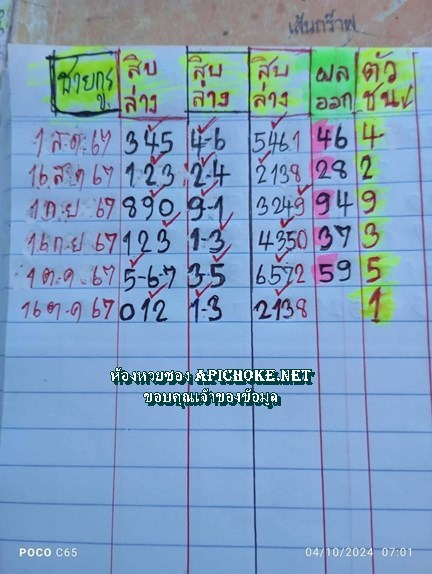 เส้นกร๊าฟ
สายกู สิบ ล่าง สิบ ล่าง สิบ ล่าง ผล ออก ตัว ชน
1 ส.ค. 67 345 4-6 5461 46 4
16 ส.ค. 67 123 2-4 2138 28 2
1 ก.ย. 67 890 9-1 3249 94 9
16 ก.ย. 67 123 1-3 4350 37 3
1 ต.ค. 67 5-6-7 3-5 6572 59 5
16 ต.ค. 67 012 1-3 2138 1
ห้องหวยซอง APICHOKE.NET
ขอบคุณเจ้าของข้อมูล
POCO C65 04/10/2024 07:01